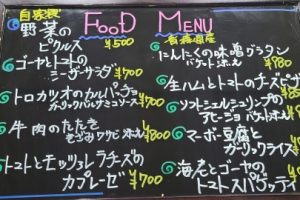 自家製
FOOD MENU
野菜の
ピクルス ¥500
ゴーヤとトマトの
シーザーサラダ ¥700
トロカツオのカルパッチョ
ガーリックバルサミコソース ¥700
牛肉のたたき
ねぎみツサと添え ¥800
トマトとモッツァレラチーズの
カプレーゼ ¥700
にんにくの味噌グラタン
バケット添え ¥980
生ハムとトマトのチーズピザ
ソフトシェルシュリンプの
アヒージョ バケット添え
マーボー豆腐と
ガーリックライス
海老とゴーヤの
トマトスパゲッティ